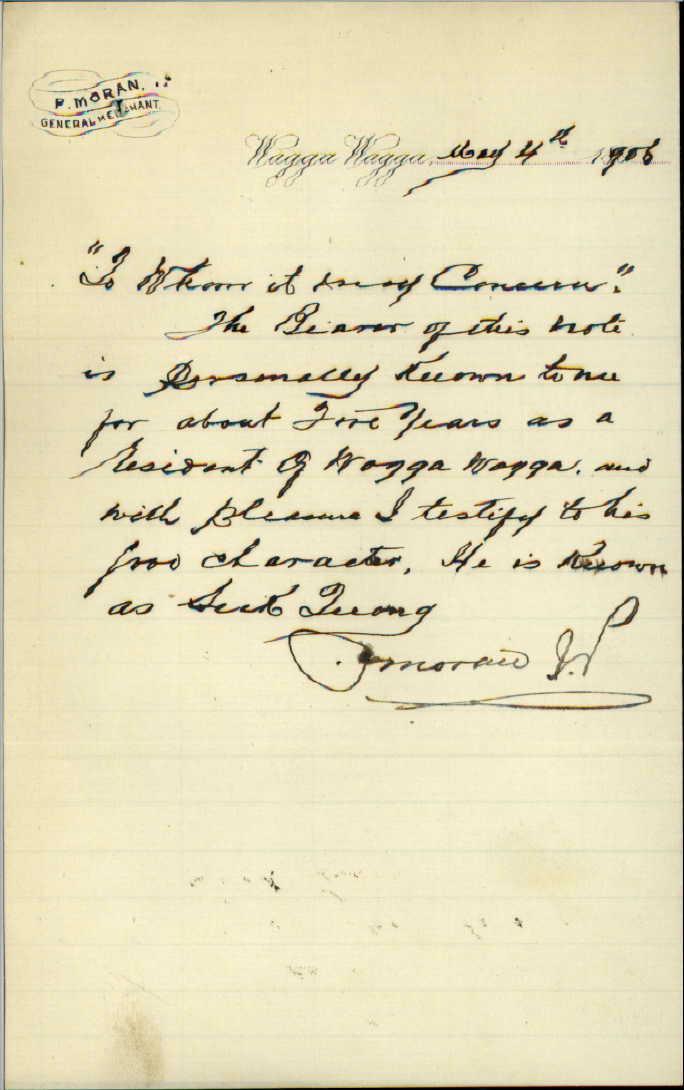 P. MORAN.
GENERAL MERCHANT
Wagga Wagga, May 4th 1906
"To Whom it may Concern".
The Bearer of this note
is personally Known to me
for about Five Years as a
Resident of Wagga Wagga. and
with pleasure I testify to his
good character, He is Known
as Quong
P Moran J.P